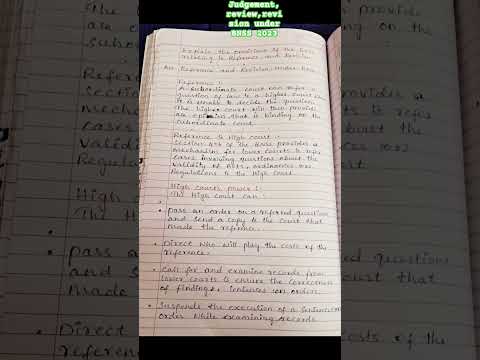 Judgement,
review,revi
sion under
BNSS 2023
Explain the provisions of the BNSS
relating to Reference and Revision
Ans Reference and Revision under BNSS
Reference :
A subordinate court can refer a
question of law to a higher court if
it is unable to decide the question
The higher court will then provide
an opinion that is binding on the
subordinate court.
Reference to High court :
Section 436 of the BNSS provides a
mechanism for lower courts to refer
cases involving questions about the
validity of Acts, ordinances or
Regulations to the High Court
High courts power :
The High court can :
• pass an order on a referred question
and send a copy to the court that
made the reference.
• Direct who will pay the costs of the
reference.
• call for and examine records from
lower courts to ensure the correctness
of findings, sentences or orders.
• Suspend the execution of a sentence or
order while examining records